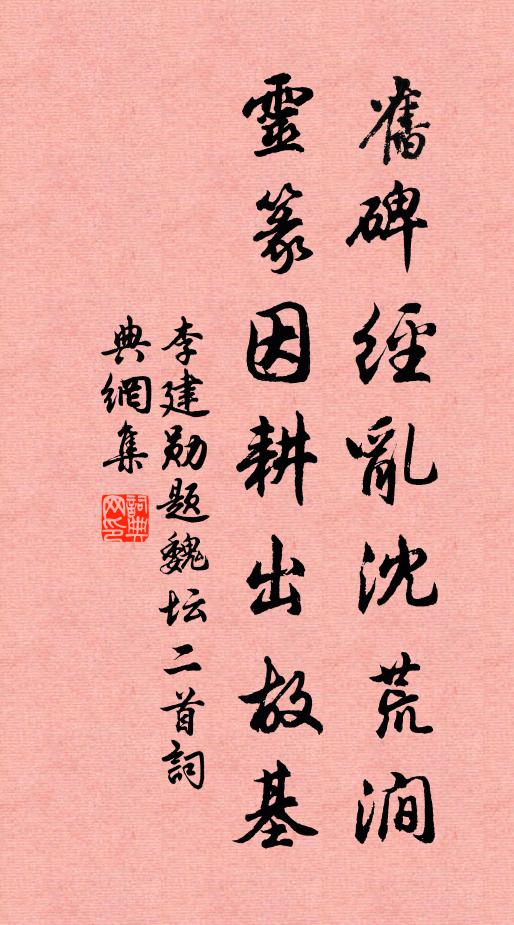 舊碑經亂沈荒澗
靈篆因耕出故基
李建勋题魏坛二首詞
典網集
詞典网印